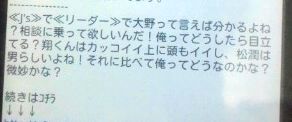 --------------
≪J's≫で≪リーダー≫で大野って言えば分かるよね
?相談に乗って欲しいんだ!俺ってどうしたら目立
てる?翔くんはカッコイイ上に頭もイイし、松潤は
男らしいよね!それに比べて俺ってどうなのかな?
微妙かな?
続きはｺﾁﾗ
↓↓↓